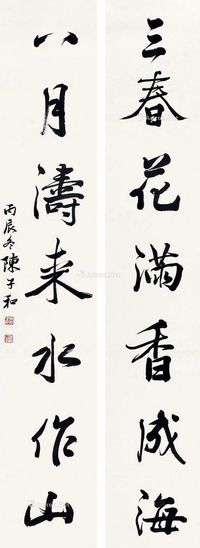 三春花滿香成海
八月濤来水作山
丙辰冬陳子和